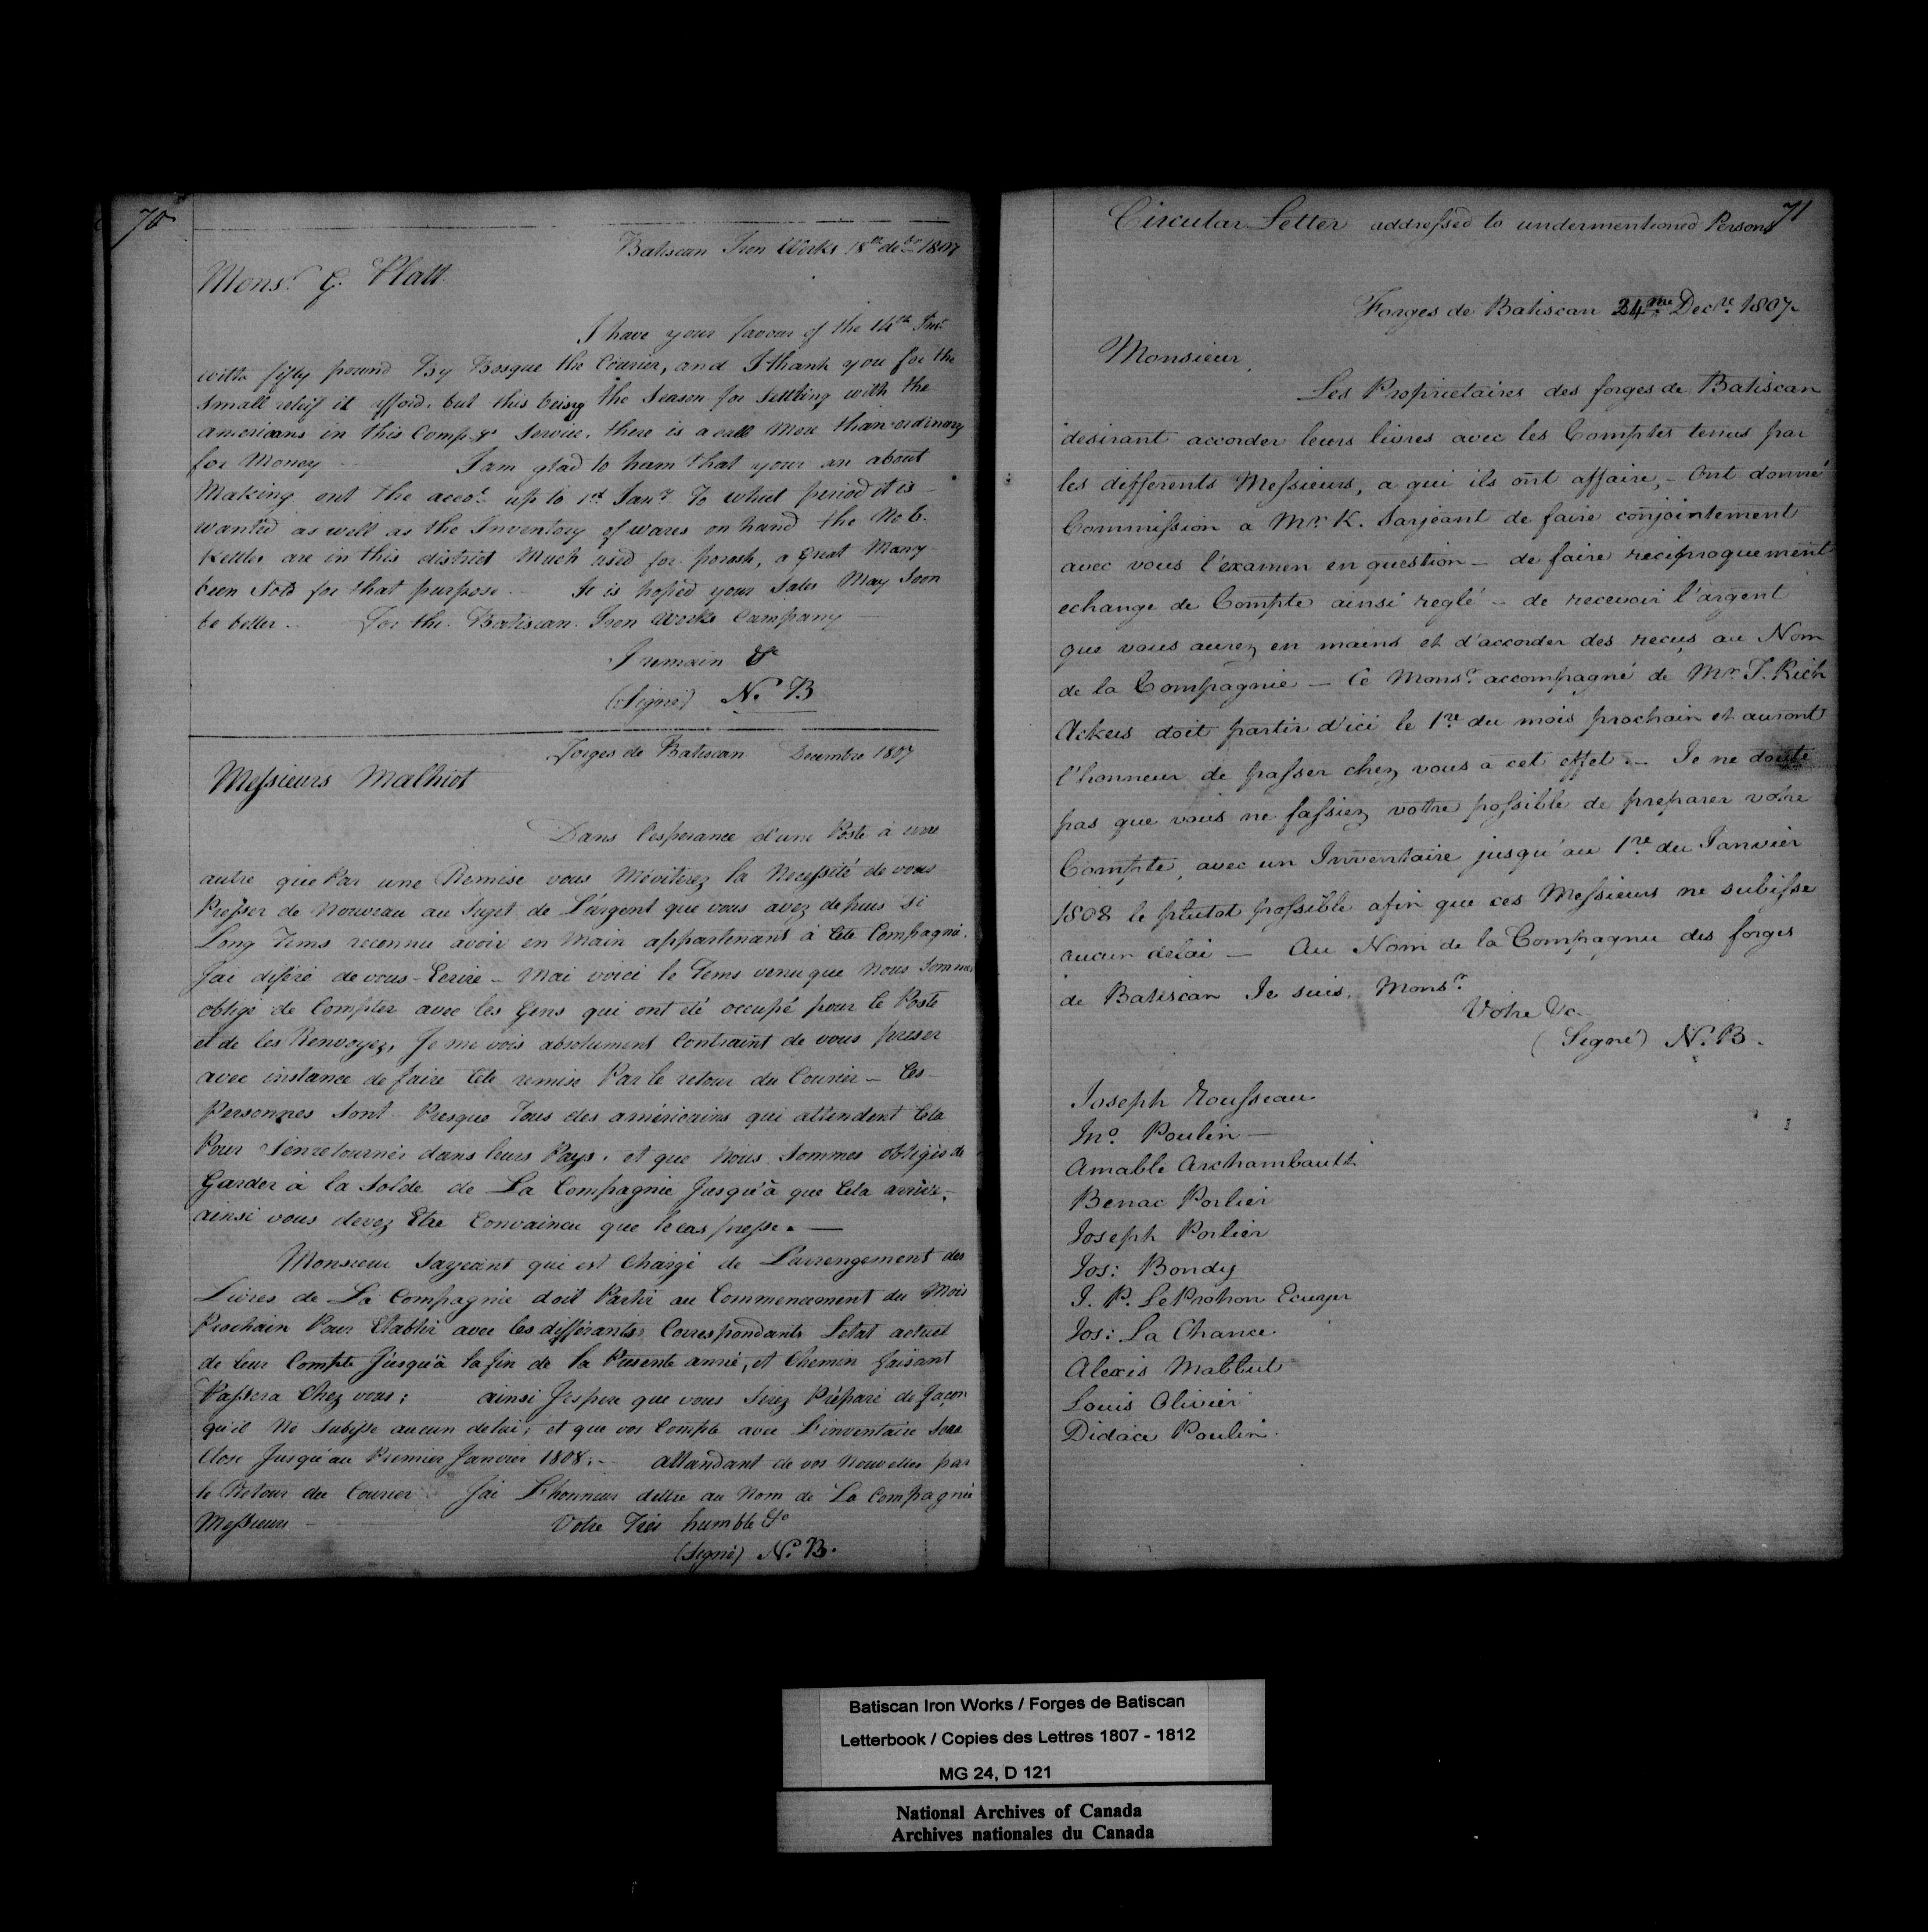 70
Batiscan Iron Works 18th debr 1807
Monsr G. Platt
I have your favour of the 14th Inst
with fifty pound By Bosque the Courier, and I thank you for the
small relief it afford. but this being the Season for Settling with the
americans in this Comp.y's Service. there is a call More than ordinary
for Money — I am glad to hear that your an about
Making out the accot up to 1st Jany To what period it is
wanted as well as the Inventory of wares on hand the No 6.
Kettles are in this district Much used for potash, a great Many
been Sold for that purpose — It is hoped your Sales May Soon
be better — For the Batiscan Iron Works Company —
I remain &c
(Signé) N. B
Forges de Batiscan Decembre 1807
Messieurs Malhiot
Dans l'esperance d'une Poste à une
autre que Par une Remise vous M'eviterez la Necessité de vous
Presser de Nouveau au Sujet de L'argent que vous avez depuis Si
Long Tems reconnu avoir en Main appartenant à Cete Compagnie.
Jai diferé de vous Ecrire — Mai voici le Tems venu que Nous Sommes
obligé de Compter avec les Gens qui ont été occupé pour le Poste
et de les Renvoyez, Je me vois absolument Contraint de vous preser
avec instance de faire Cete remise Par le retour du Courier — Ces
Personnes Sont Presque Tous des américains qui attendent Cela
Pour S'enretourner dans leurs Pays. et que Nous Sommes obligés de
Garder à la Solde de La Compagnie Jusqu'à que Cela arrive,
ainsi vous devez Etre Convaincu que le cas presse. —
Monsieur Sarjeant qui est Chargé de L'arrengement des
Livres de La Compagnie doit Partir au Commencement du Mois
Prochain Pour Etablir avec les différants Correspondants L'etat actuel
de leur Compte Jusqu'à la fin de la Presente année, et Chemin faisant
Passera Chez vous; ainsi J'espere que vous Serez Préparé de façon
qu'il Ne Subisse aucun delai; et que vos Compte avec L'inventaire Sera
Clos Jusqu'au Premier Janvier 1808. — attandant de vos Nouvelles par
le Retour du Courier Jai L'honneur d'etre au Nom de La Compagnie
Messieurs — Votre Très humble &c
(Signé) N. B.
71
Circular Letter addressed to undermentioned Persons
Forges de Batiscan 24me Decre 1807
Monsieur,
Les Proprietaires des forges de Batiscan
desirant accorder leurs livres avec les Comptes tenus par
les differents Messieurs, a qui ils ont affaire, — Ont donné
Commission a Mr K. Sarjeant de faire conjointement
avec vous l'examen en question — de faire reciproquement
echange de Compte ainsi reglé — de recevoir l'argent
que vous aurez en mains et d'accorder des reçus au Nom
de la Compagnie — Ce Monsr accompagné de Mr T. Rich
Ackus doit partir d'ici le 1re du mois prochain et auront
l'honneur de passer chez vous a cet effet — Je ne doute
pas que vous ne fassiez votre possible de preparer votre
Compte, avec un Inventaire jusqu'au 1re du Janvier
1808 le plutot possible afin que ces Messieurs ne subisse
aucun delai — Au Nom de la Compagnie des forges
de Batiscan Je suis, Monsr
Votre &c
(Signé) N. B.
Joseph Rousseau
Jno Poulin —
Amable Archambault
Benac Porlier
Joseph Porlier
Jos: Bondy
J. P. LeProhon Ecuyer
Jos: La Chance
Alexis Mabbut
Louis Olivier
Didace Poulin
Batiscan Iron Works / Forges de Batiscan
Letterbook / Copies des Lettres 1807 - 1812
MG 24, D 121
National Archives of Canada
Archives nationales du Canada